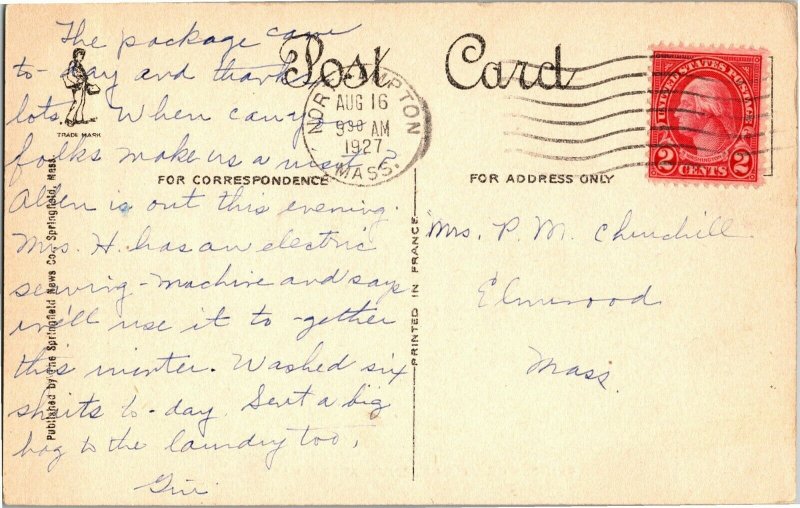 The package came
to-day and thanks
lots. When can
folks make us a visit?
Alden is out this evening.
Mrs. H. has an electric
sewing-machine and says
we'll use it to-gether
this winter. Washed six
shirts to-day. Sent a big
bag to the laundry too.
Post Card
TRADE MARK
NORTHAMPTON
AUG 16
9 30 AM
1927
MASS.
UNITED STATES POSTAGE
2 CENTS 2
FOR CORRESPONDENCE
FOR ADDRESS ONLY
Mrs. P. M. Churchill.
Elmwood
Mass.
Published by The Springfield News Co., Springfield, Mass.
PRINTED IN FRANCE